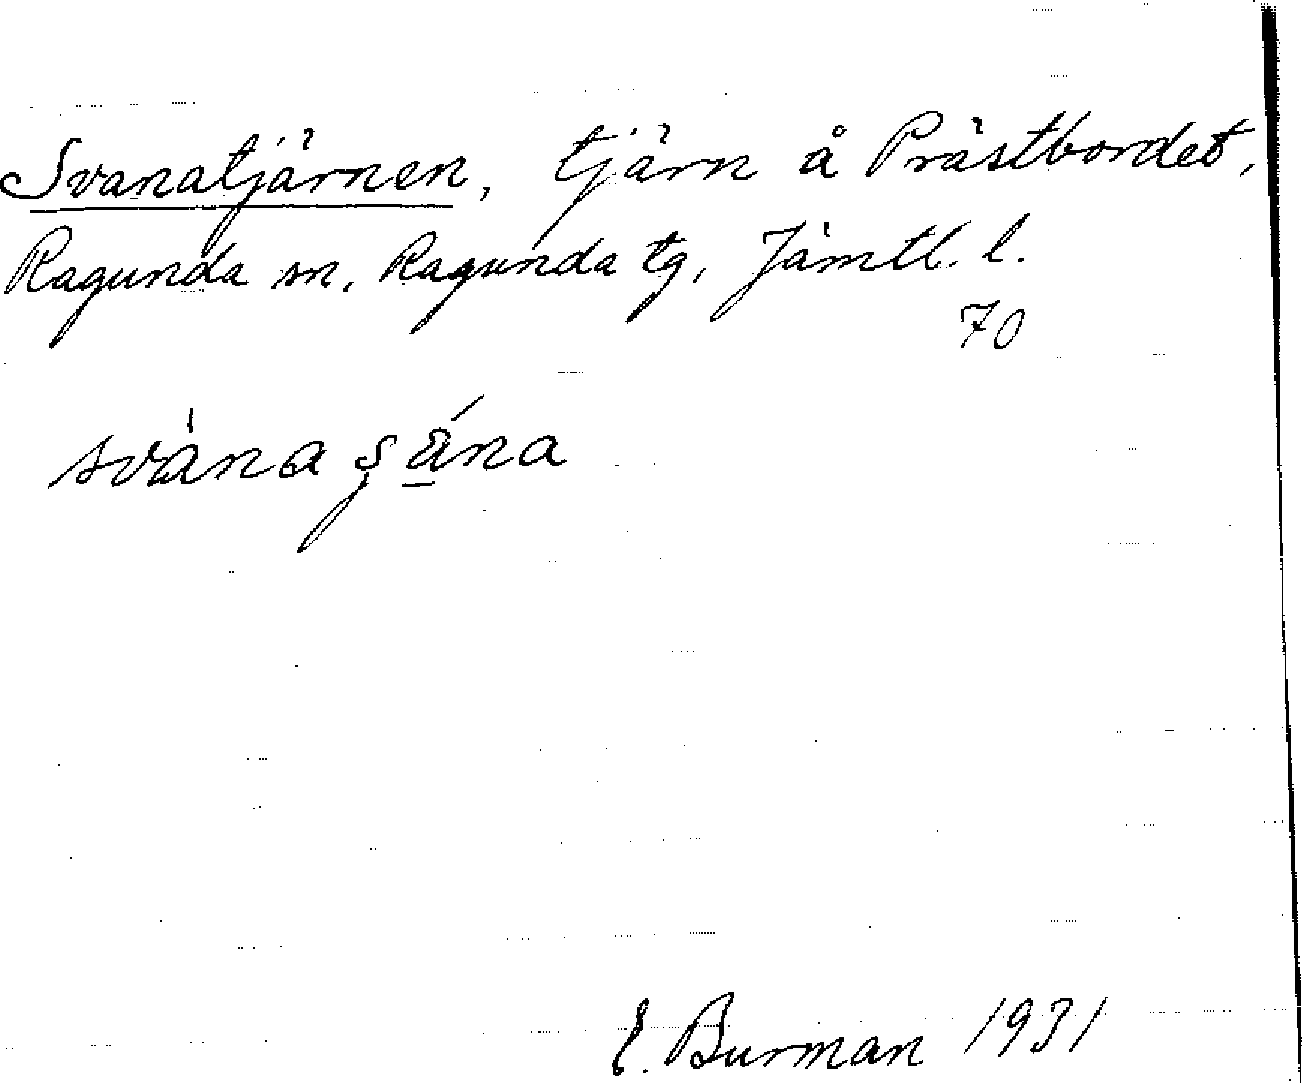 Svanatjärnen, tjärn å Prästbordet,
Ragunda sn, Ragunda tg, Jämtl. l.
70
svȧna ʂána
E. Burman 1931